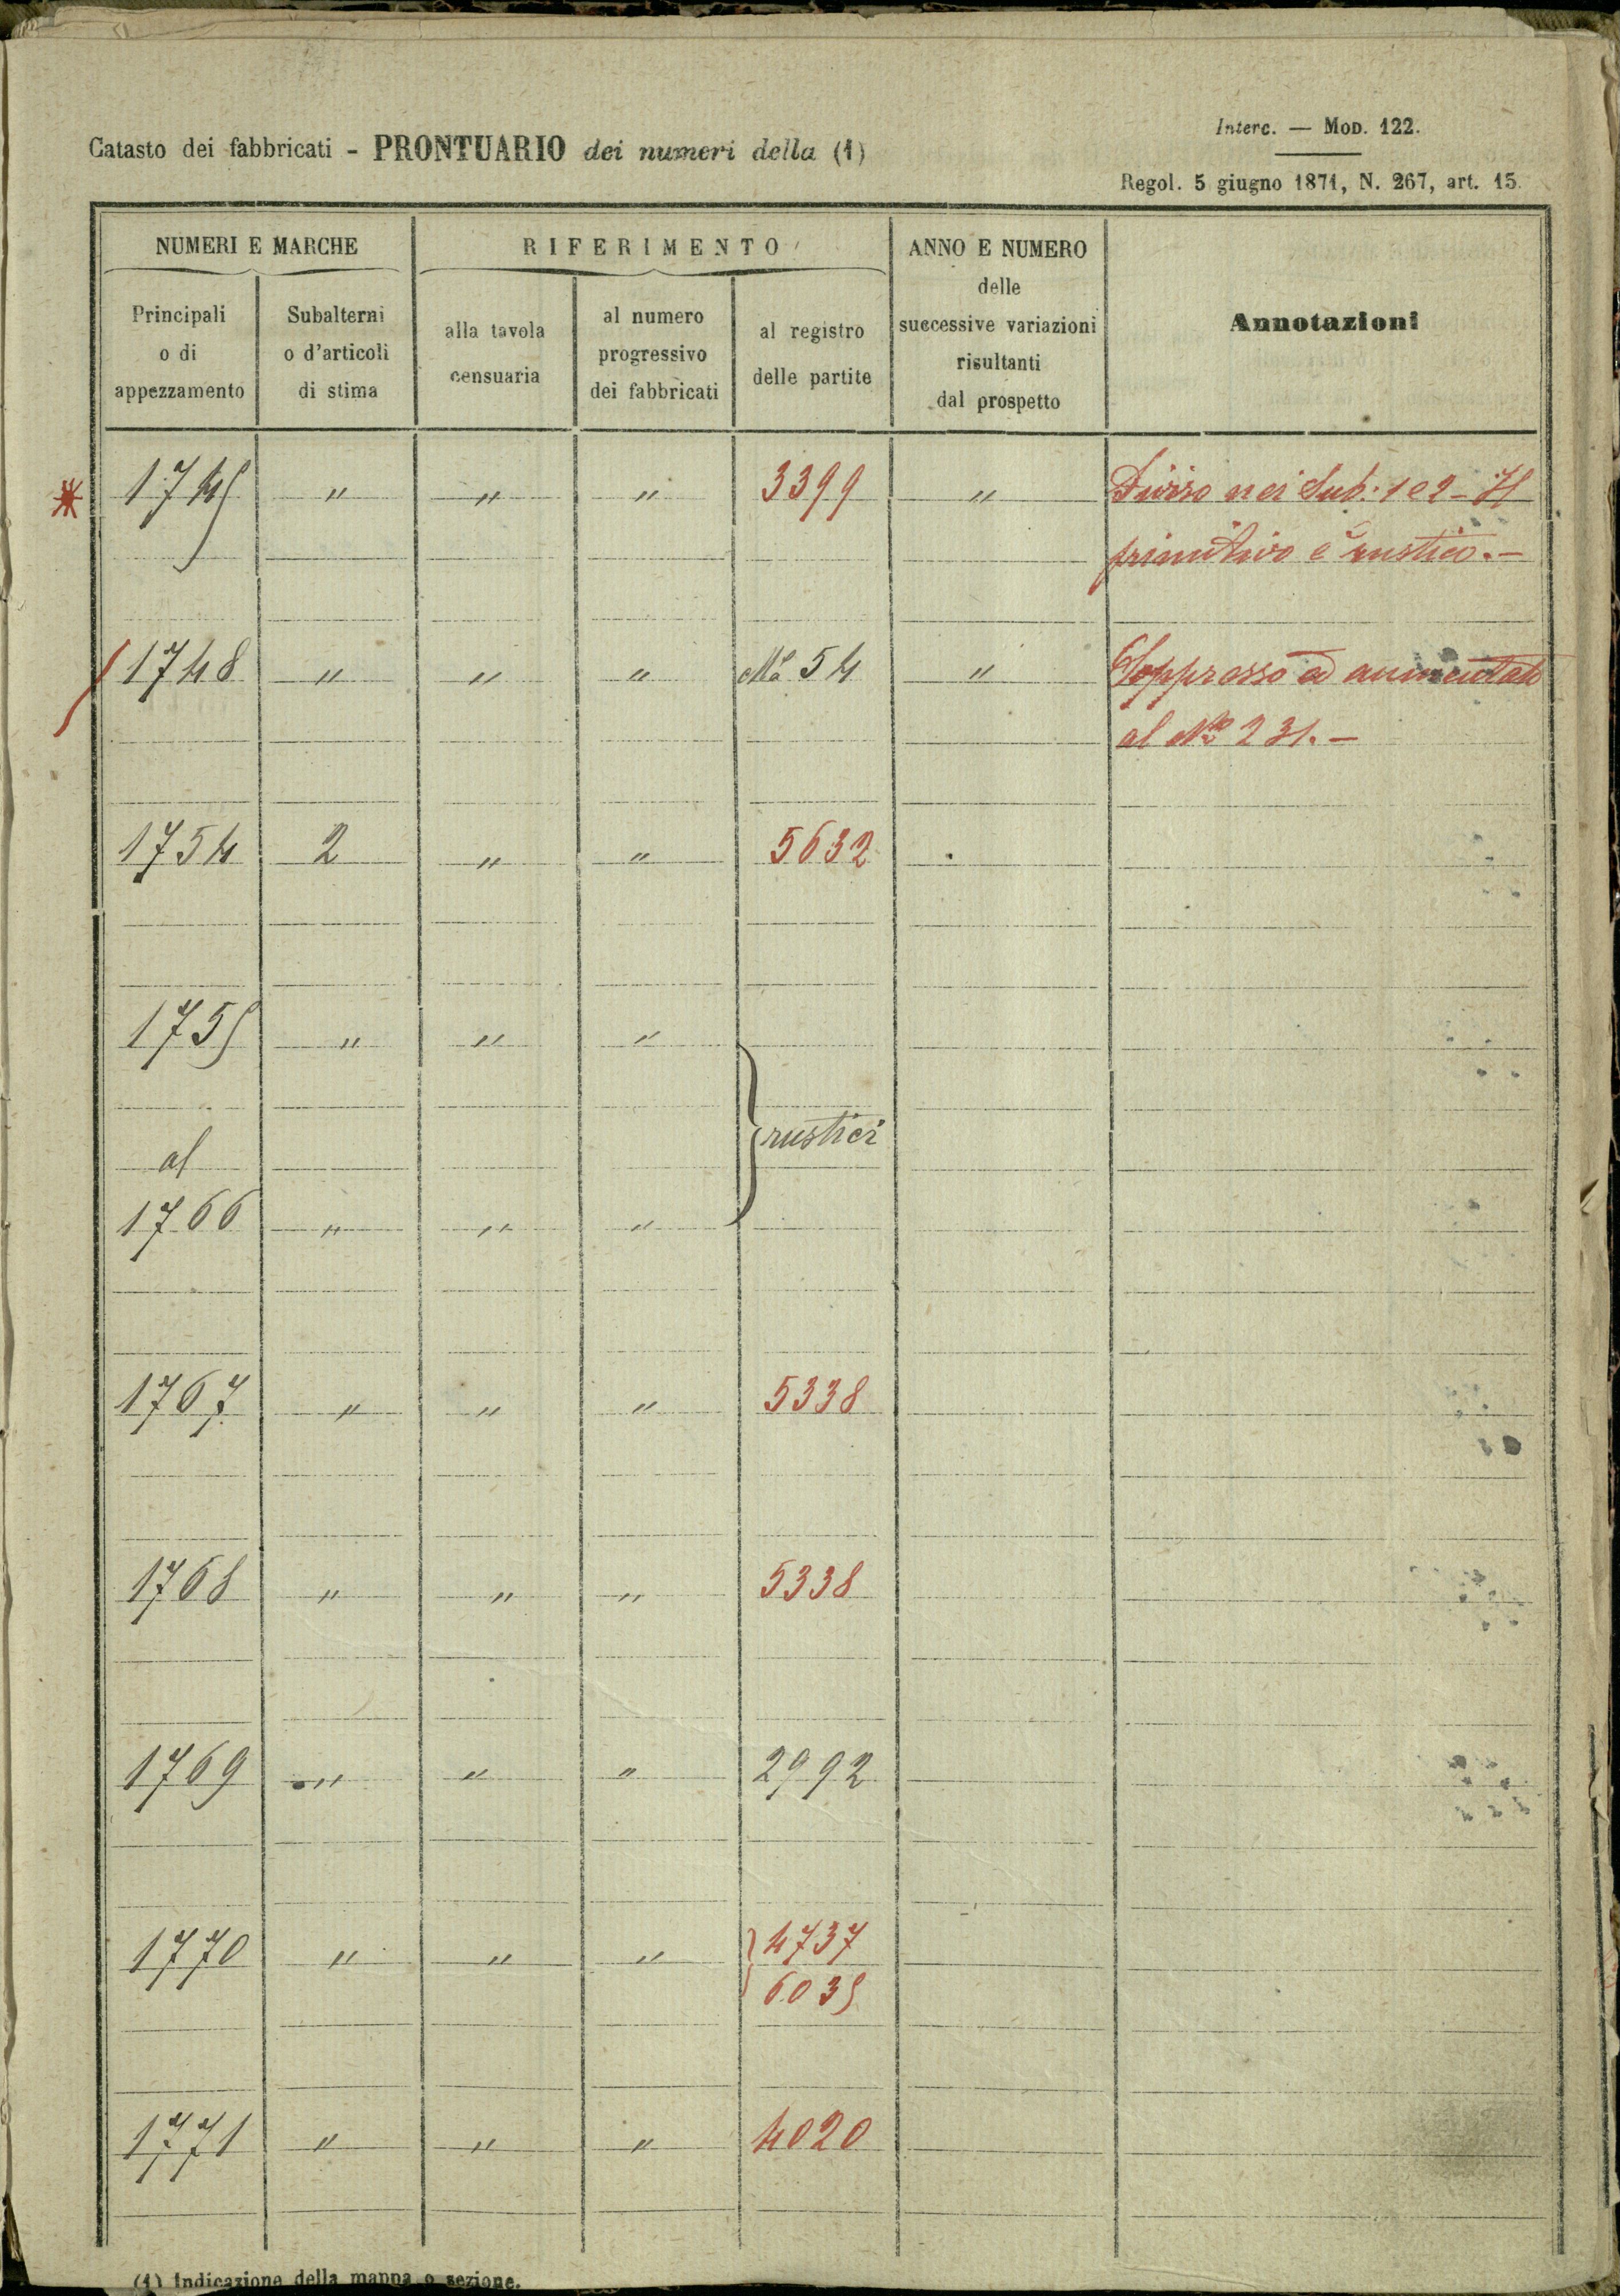 Interc. — Mod. 122.
Catasto dei fabbricati - PRONTUARIO dei numeri della (1)
Regol. 5 giugno 1871, N. 267, art. 15.
NUMERI E MARCHE
RIFERIMENTO
ANNO E NUMERO
delle
successive variazioni
risultanti
dal prospetto
Annotazioni
Principali
o di
appezzamento
Subalterni
o d'articoli
di stima
alla tavola
censuaria
al numero
progressivo
dei fabbricati
al registro
delle partite
1745 " " " 3399 " Diviso nei Sub: 1 e 2 - Il
primitivo è rustico. -
1748 " " " 54 " Soppresso ed aumentato
al No 231. -
1754 2 " " 5632
1755 " " "
rustici
al
1766 " " "
1767 " " " 5338
1768 " " " 5338
1769 " " " 2992
1770 " " " 4737
6035
1771 " " " 4020
(1) Indicazione della mappa o sezione.